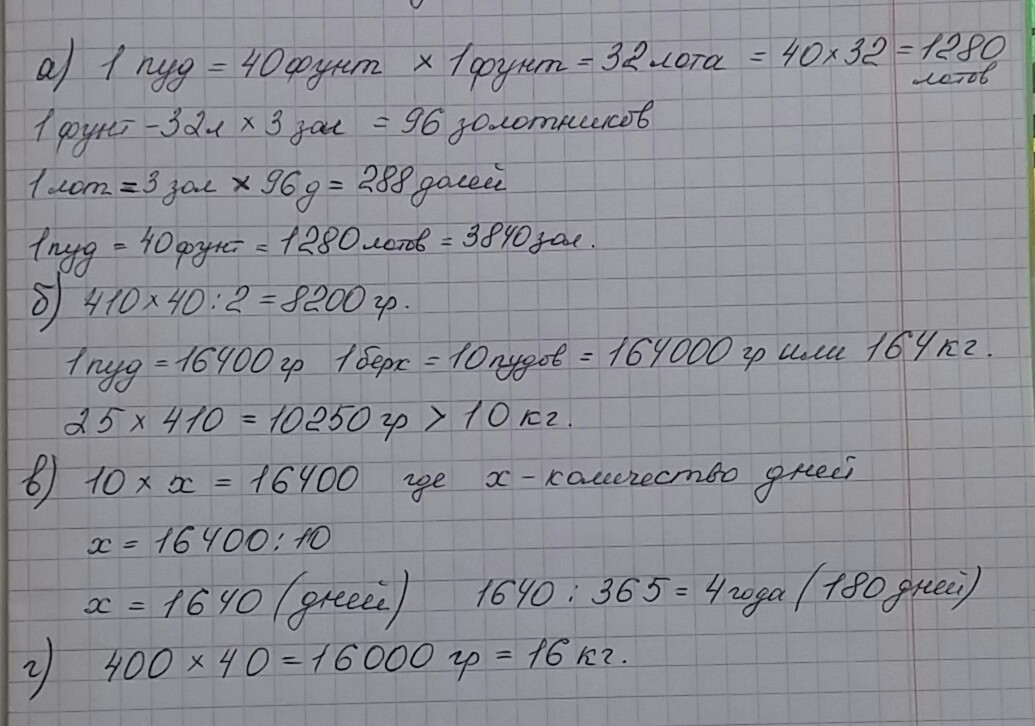 а) 1 пуд = 40 фунт × 1 фунт = 32 лота = 40×32 = 1280 лотов
1 фунт - 32 л × 3 зол = 96 золотников
1 лот = 3 зол × 96 д = 288 долей
1 пуд = 40 фунт = 1280 лотов = 3840 зол.
б) 410 × 40 : 2 = 8200 гр.
1 пуд = 16400 гр 1 берк = 10 пудов = 164000 гр или 164 кг.
25 × 410 = 10250 гр > 10 кг.
в) 10 × x = 16400 где x - количество дней
x = 16400 : 10
x = 1640 (дней) 1640 : 365 = 4 года (180 дней)
г) 400 × 40 = 16000 гр = 16 кг.